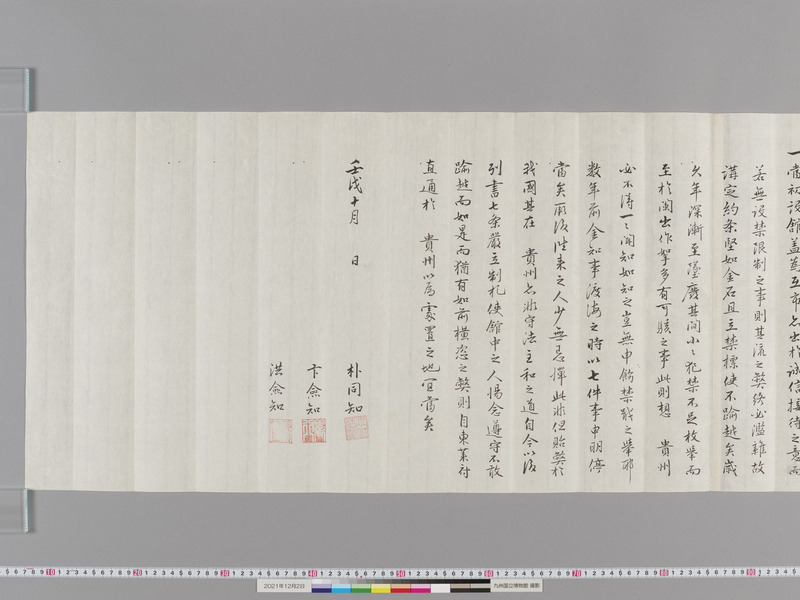 一當初設館蓋爲互市亦出於誠信接待之意而
若無設禁限制之事則其流之弊終必濫雜故
講定約条堅如金石且立禁標使不踰越矣歲
久年深漸至墜廢其間小〻犯禁不足枚舉而
至於闌出作拏多有可駭之事此則想 貴州
必不得一〻聞知如知之豈無申飭禁戢之舉耶
數年前金知事渡海之時以七件事申明停
當矣而後往来之人少無忌憚此非但貽弊於
我國其在 貴州亦非守法主和之道自今以後
列書七条嚴立制札使館中之人惕念遵守不敢
踰越而如是而猶有如前橫恣之弊則自東萊府
直通於 貴州以爲處置之地宜當矣
壬戌十月 日
朴同知
卞僉知
洪僉知
2021年12月2日
九州国立博物館 撮影